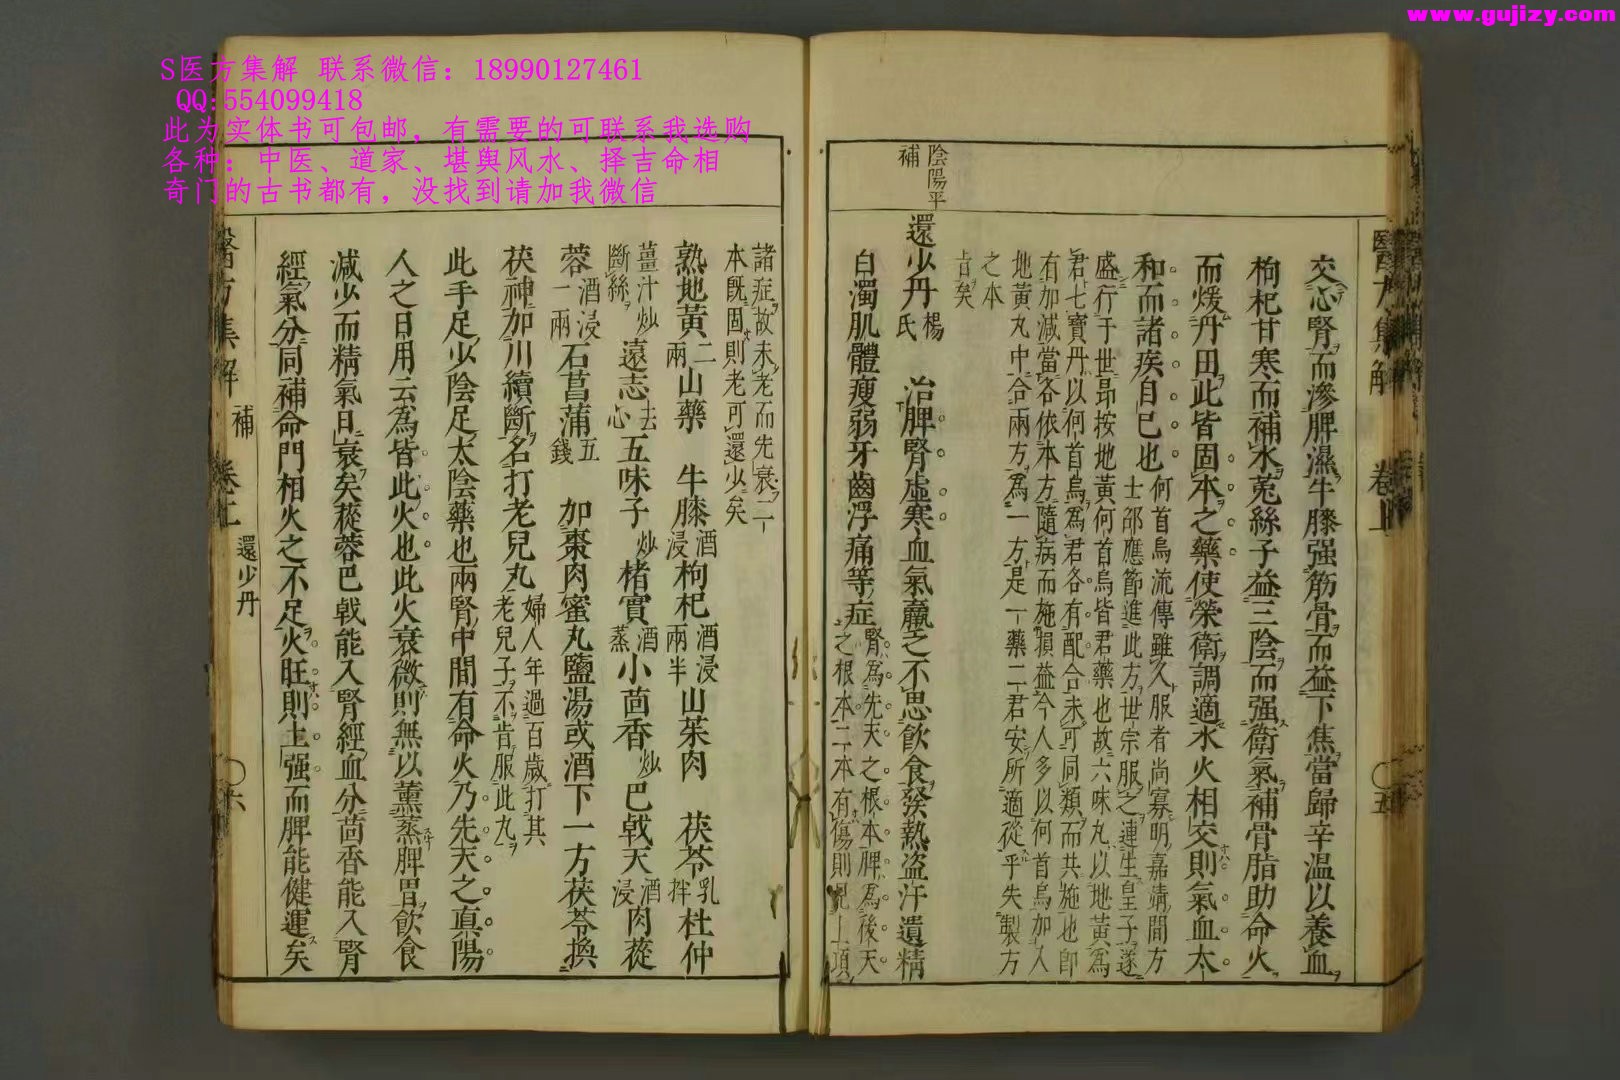 www.gujizy.com
S医方集解 联系微信：18990127461
QQ:554099418
此为实体书可包邮，有需要的可联系我选购
各种：中医、道家、堪舆风水、择吉命相
奇门的古书都有，没找到请加我微信
醫方集解
卷上
〇五
交心腎而滲脾濕牛膝强筋骨而益下焦當歸辛溫以養血
枸杞甘寒而補水菟絲子益三陰而强衛氣補骨脂助命火
而煖丹田此皆固本之藥使榮衛調適水火相交則氣血太
和而諸疾自已也
何首烏流傳雖久服者尚寡明嘉靖間方
士邵應節進此方世宗服之連生皇子遂
盛行于世昂按地黃何首烏皆君藥也故六味丸以地黃爲
君七寶丹以何首烏爲君各有配合未可同類而共施也卽
有加減當各依本方隨病而施損益今人多以何首烏加入
地黃丸中合兩方爲一方是一藥二君安所適從乎失製方
之本
旨矣
陰陽平
補
還少丹
楊
氏
治脾腎虛寒血氣羸乏不思飲食發熱盜汗遺精
白濁肌體瘦弱牙齒浮痛等症
腎爲先天之根本脾爲後天
之根本二本有傷則見上項
諸症故未老而先衰二
本旣固則老可還少矣
熟地黃
二
兩
山藥
牛膝
酒
浸
枸杞
酒浸
兩半
山茱肉
茯苓
乳
拌
杜仲
薑汁炒
斷絲
遠志
去
心
五味子
炒
楮實
酒
蒸
小茴香
炒
巴戟天
酒
浸
肉蓯
蓉
酒浸
一兩
石菖蒲
五
錢
加棗肉蜜丸鹽湯或酒下一方茯苓換
茯神加川續斷名打老兒丸
婦人年過百歲打其
老兒子不肯服此丸
此手足少陰足太陰藥也兩腎中間有命火乃先天之眞陽
人之日用云爲皆此火也此火衰微則無以薰蒸脾胃飲食
減少而精氣日衰矣蓯蓉巴戟能入腎經血分茴香能入腎
經氣分同補命門相火之不足火旺則土强而脾能健運矣
醫方集解
補
卷上
還少丹
〇六